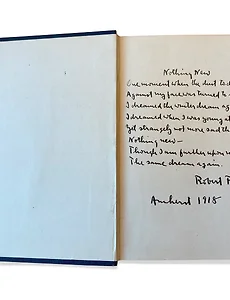 Nothing New
One moment when the dust to d
Against my face was turned to
I dreamed the winter dream ag
I dreamed when I was young at
Yet strangely not more sad tha
Nothing new—
Though I am further upon
The same dream again.
Robert F
Amherst 1918